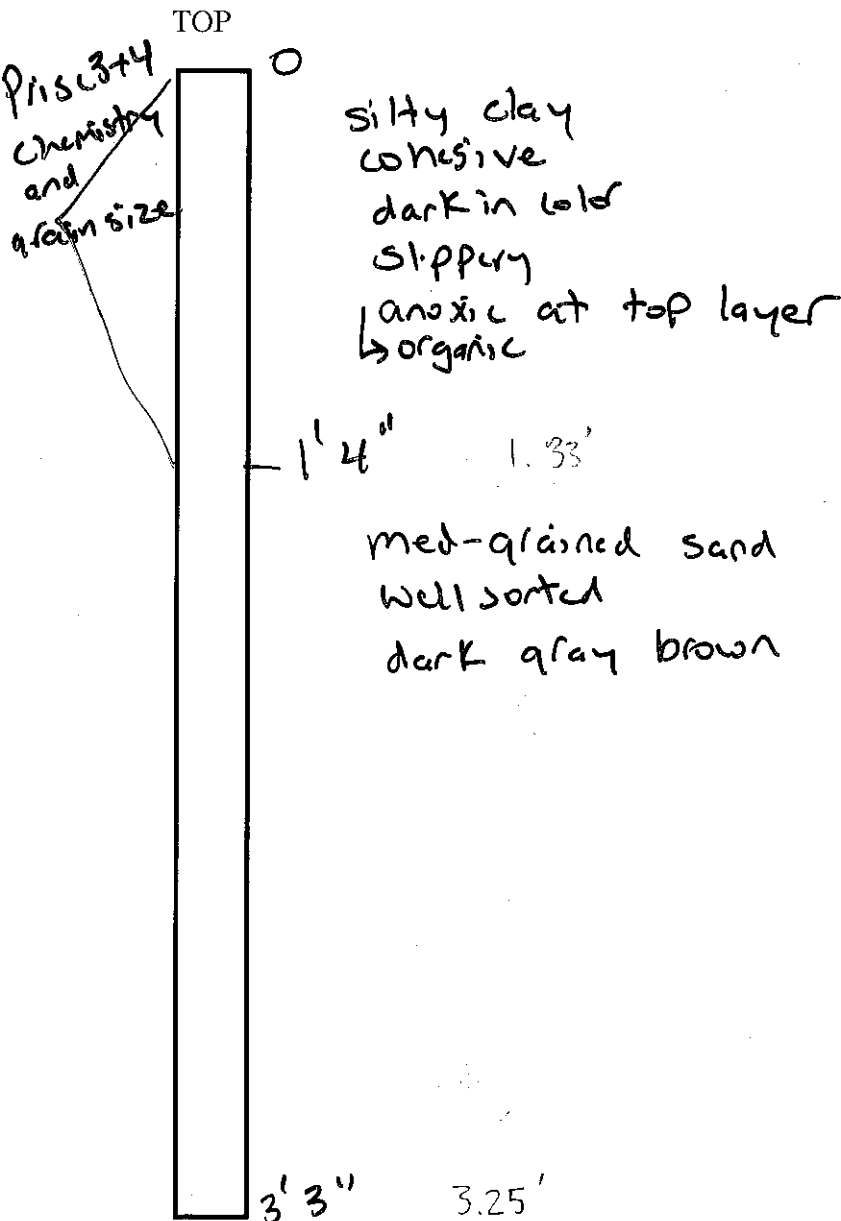 TOP
0
Prisc 3+4
Chemistry
and
grain size
silty clay
cohesive
dark in color
slippery
anoxic at top layer
↳ organic
1' 4" 1.33'
med-grained sand
well sorted
dark gray brown
3' 3" 3.25'